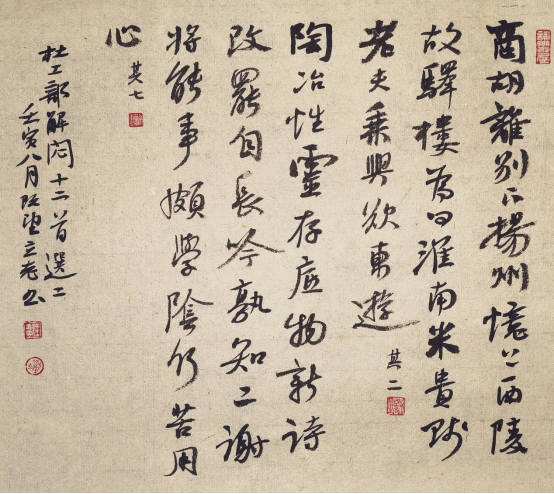 商胡離别下揚州憶上西陵
故驛樓為问淮南米貴賤
老夫乘興欲東遊 其二
陶冶性靈存底物新詩
改罷自長吟孰知二謝
將能事頗學陰何苦用
心 其七
杜工部解悶十二首選二
壬寅八月 书